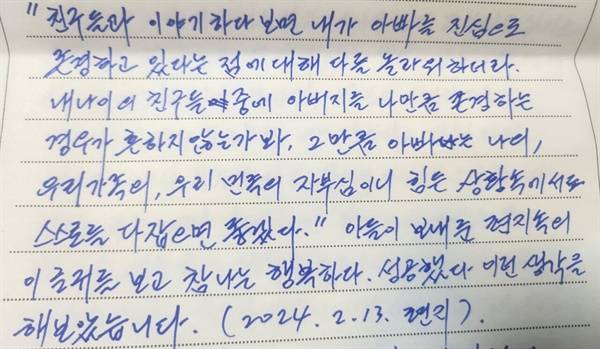 "친구들과 이야기하다 보면 내가 아빠를 진심으로
존경하고 있다는 점에 대해 다들 놀라워하더라.
내 나이의 친구들 중에 아버지를 나만큼 존경하는
경우가 흔하지 않는가 봐, 그만큼 아빠는 나의,
우리 가족의, 우리 민족의 자부심이니 힘든 상황속에서도
스스로를 다잡으면 좋겠다." 아들이 보내 준 편지속의
이 글귀를 보고 참 나는 행복하다. 성공했다 이런 생각을
해보았습니다. (2024. 2. 13. 편지).